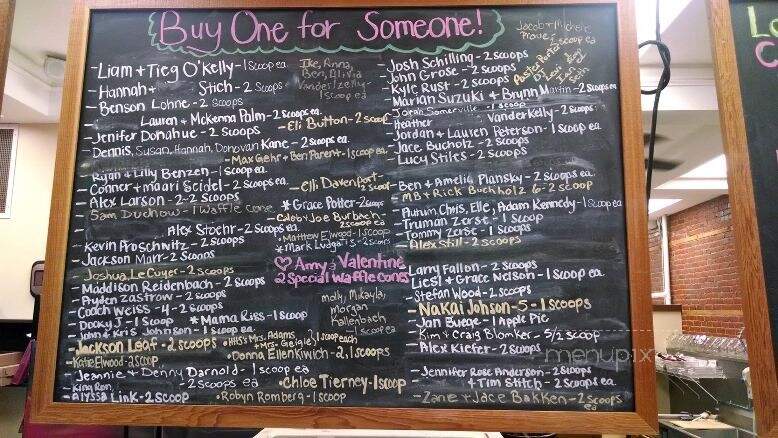 Buy One for Someone!
Liam + Tieg O'Kelly - 1 scoop ea
Hannah + Stich - 2 scoops
Benson Lohne - 2 scoops
Lauren + McKenna Palm - 2 scoops ea.
Jenifer Donahue - 2 scoops
Eli Button - 2 scoops
Dennis, Susan, Hannah, Donovan Kane - 2 scoops ea.
Max Gehr + Ben Parent - 1 scoop ea.
Ryan + Lilly Benzen - 1 scoop ea
Connor + Maari Seidel - 2 scoops ea
Elli Davenport - 2 scoops
Alex Larson - 2 - 2 scoops
* Grace Potter - 2 scoops
Sam Duchow - 1 waffle cone
Caleb + Joe Burbach - 2 scoops ea
Alex Stoehr - 2 scoops ea.
Matthew Elwell - 1 scoop
Kevin Proschwitz - 2 scoops
* Mark
Jackson Marr - 2 scoops
Joshua LeCuyer - 2 scoops
♡ Amy + Valentine
2 special waffle cones
Maddison Reidenbach - 2 scoops
Pryden Zastrow - 2 scoops
Coach Weiss - 4 - 2 scoops
Molly, Mikayla,
Morgan
Kallenbach
1 scoop ea
Dooky J - 1 scoop
* Mama Riss - 1 scoop
John + Kris Johnson - 1 scoop
Jackson Leaf - 2 scoops
HHS's Mrs. Adams
+ Mrs. Geigle 1 scoop each
Katie Elwood - 2 scoop
Donna Ellenkiwich - 2, 1 scoops
Jeannie + Denny Darnold - 1 scoop ea
King Ron - 2 scoops ea
Chloe Tierney - 1 scoop
Alyssa Link - 2 scoop
Robyn Romberg - 1 scoop
Ike, Anna,
Ben, Olivia
Vanderizelly
1 scoop ea
Josh Schilling - 2 scoops
John Grose - 2 scoops
Kyle Rust - 2 scoops
Marian Suzuki + Brynn Martin - 2 scoops ea
Jorah Somerville - 1 scoop
Heather VanderKelly - 2 scoops
Jordan + Lauren Peterson - 1 scoop ea.
Jace Bucholz - 2 scoops
Lucy Stiles - 2 scoops
Ben + Amelia Plansky - 2 scoops ea
MB + Rick Buchholz 6 - 2 scoop
Autum, Chris, Elle, Adam Kennedy - 1 scoop ea
Truman Zerse - 1 scoop
Tommy Zerse - 1 scoop
Alex Still - 2 scoops
Larry Fallon - 2 scoops
Liesl + Grace Nelson - 1 scoop ea.
Stefan Wood - 2 scoops
Nakai Johson - 5 - 1 scoops
Jan Buege - 1 Apple Pie
Kim + Craig Blomker - 5/2 scoop
Alex Kiefer - 2 scoops
Jennifer Rose Anderson - 2 scoops
+ Tim Stitch - 2 scoops ea
Zane + Jace Bakken - 2 scoops ea
Jacob + Michele
1 scoop ea
Pastor Porter
menupix